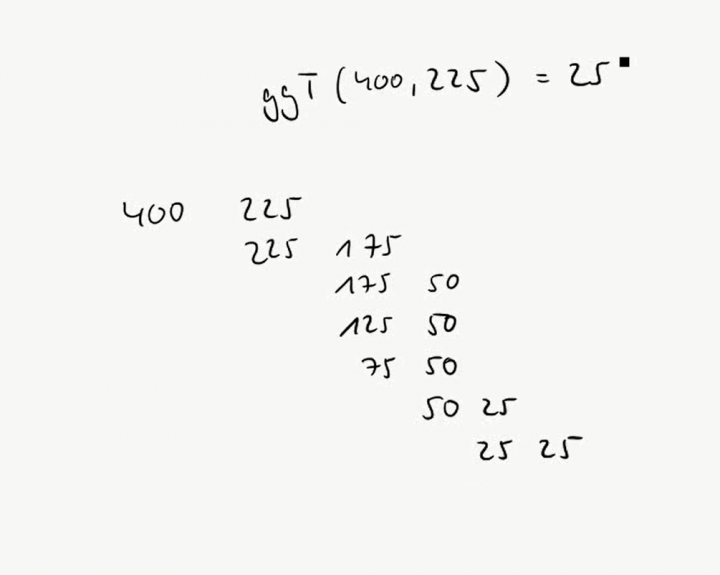 ggT (400, 225) = 25
400 225
225 175
175 50
125 50
75 50
50 25
25 25